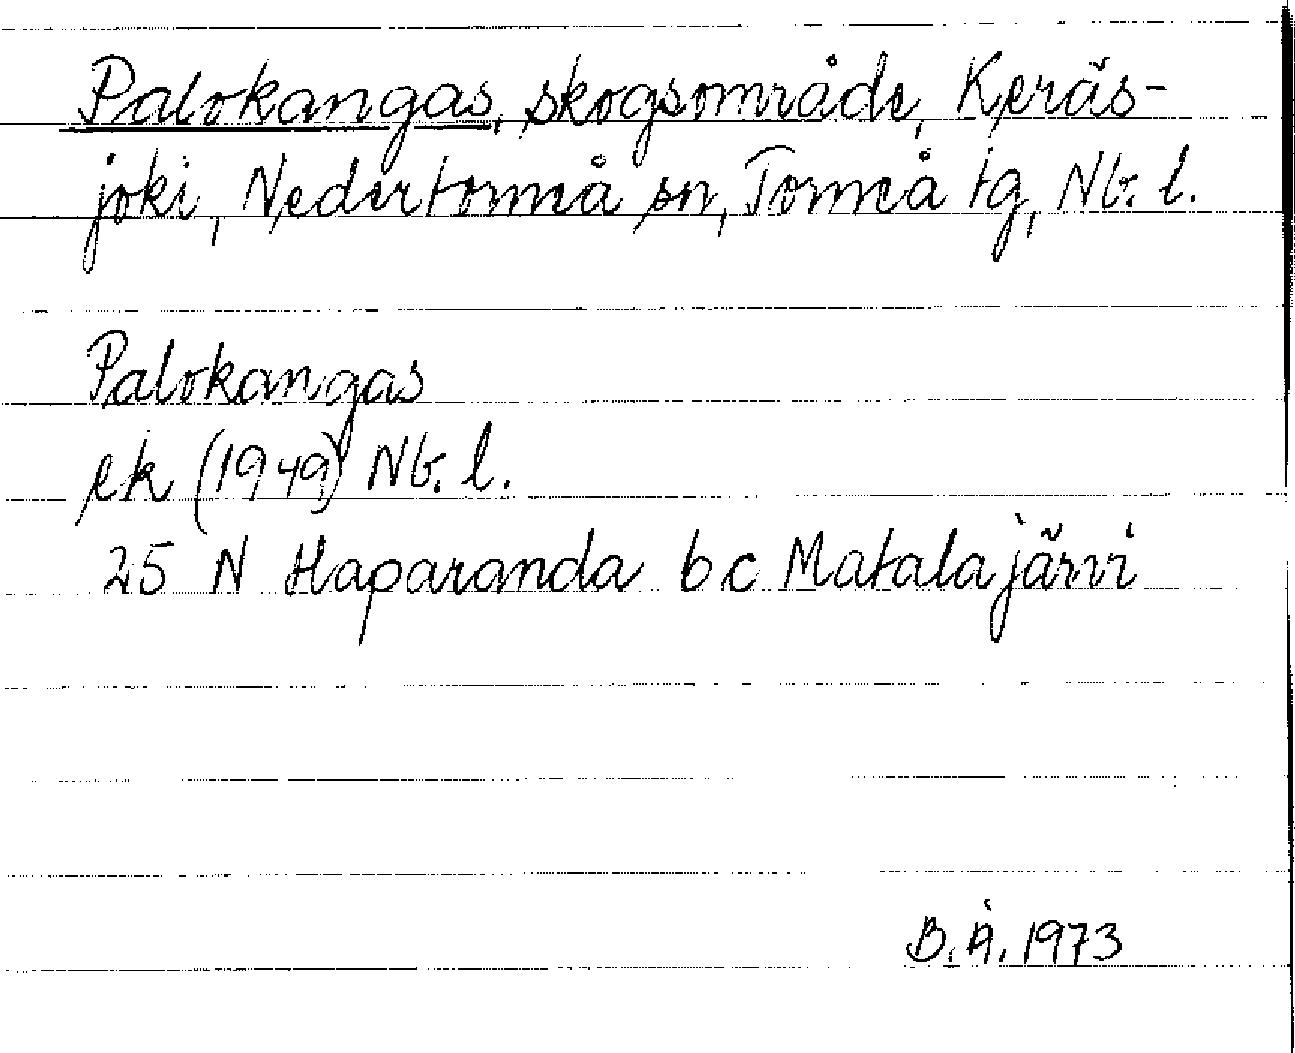 Palokangas, skogsområde, Keräs-
joki, Nedertorneå sn, Torneå tg, Nb. l.
Palokangas
ek (1949) Nb. l.
25 N Haparanda b c Matalajärvi
B. Å. 1973